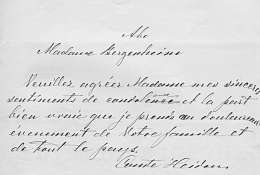 Madame Bergenheim
Veuillez agréer Madame mes sincères
sentiments de condoléance et la part
bien vraie que je prends au douloureux
événement de Votre famille et
de tout le pays.